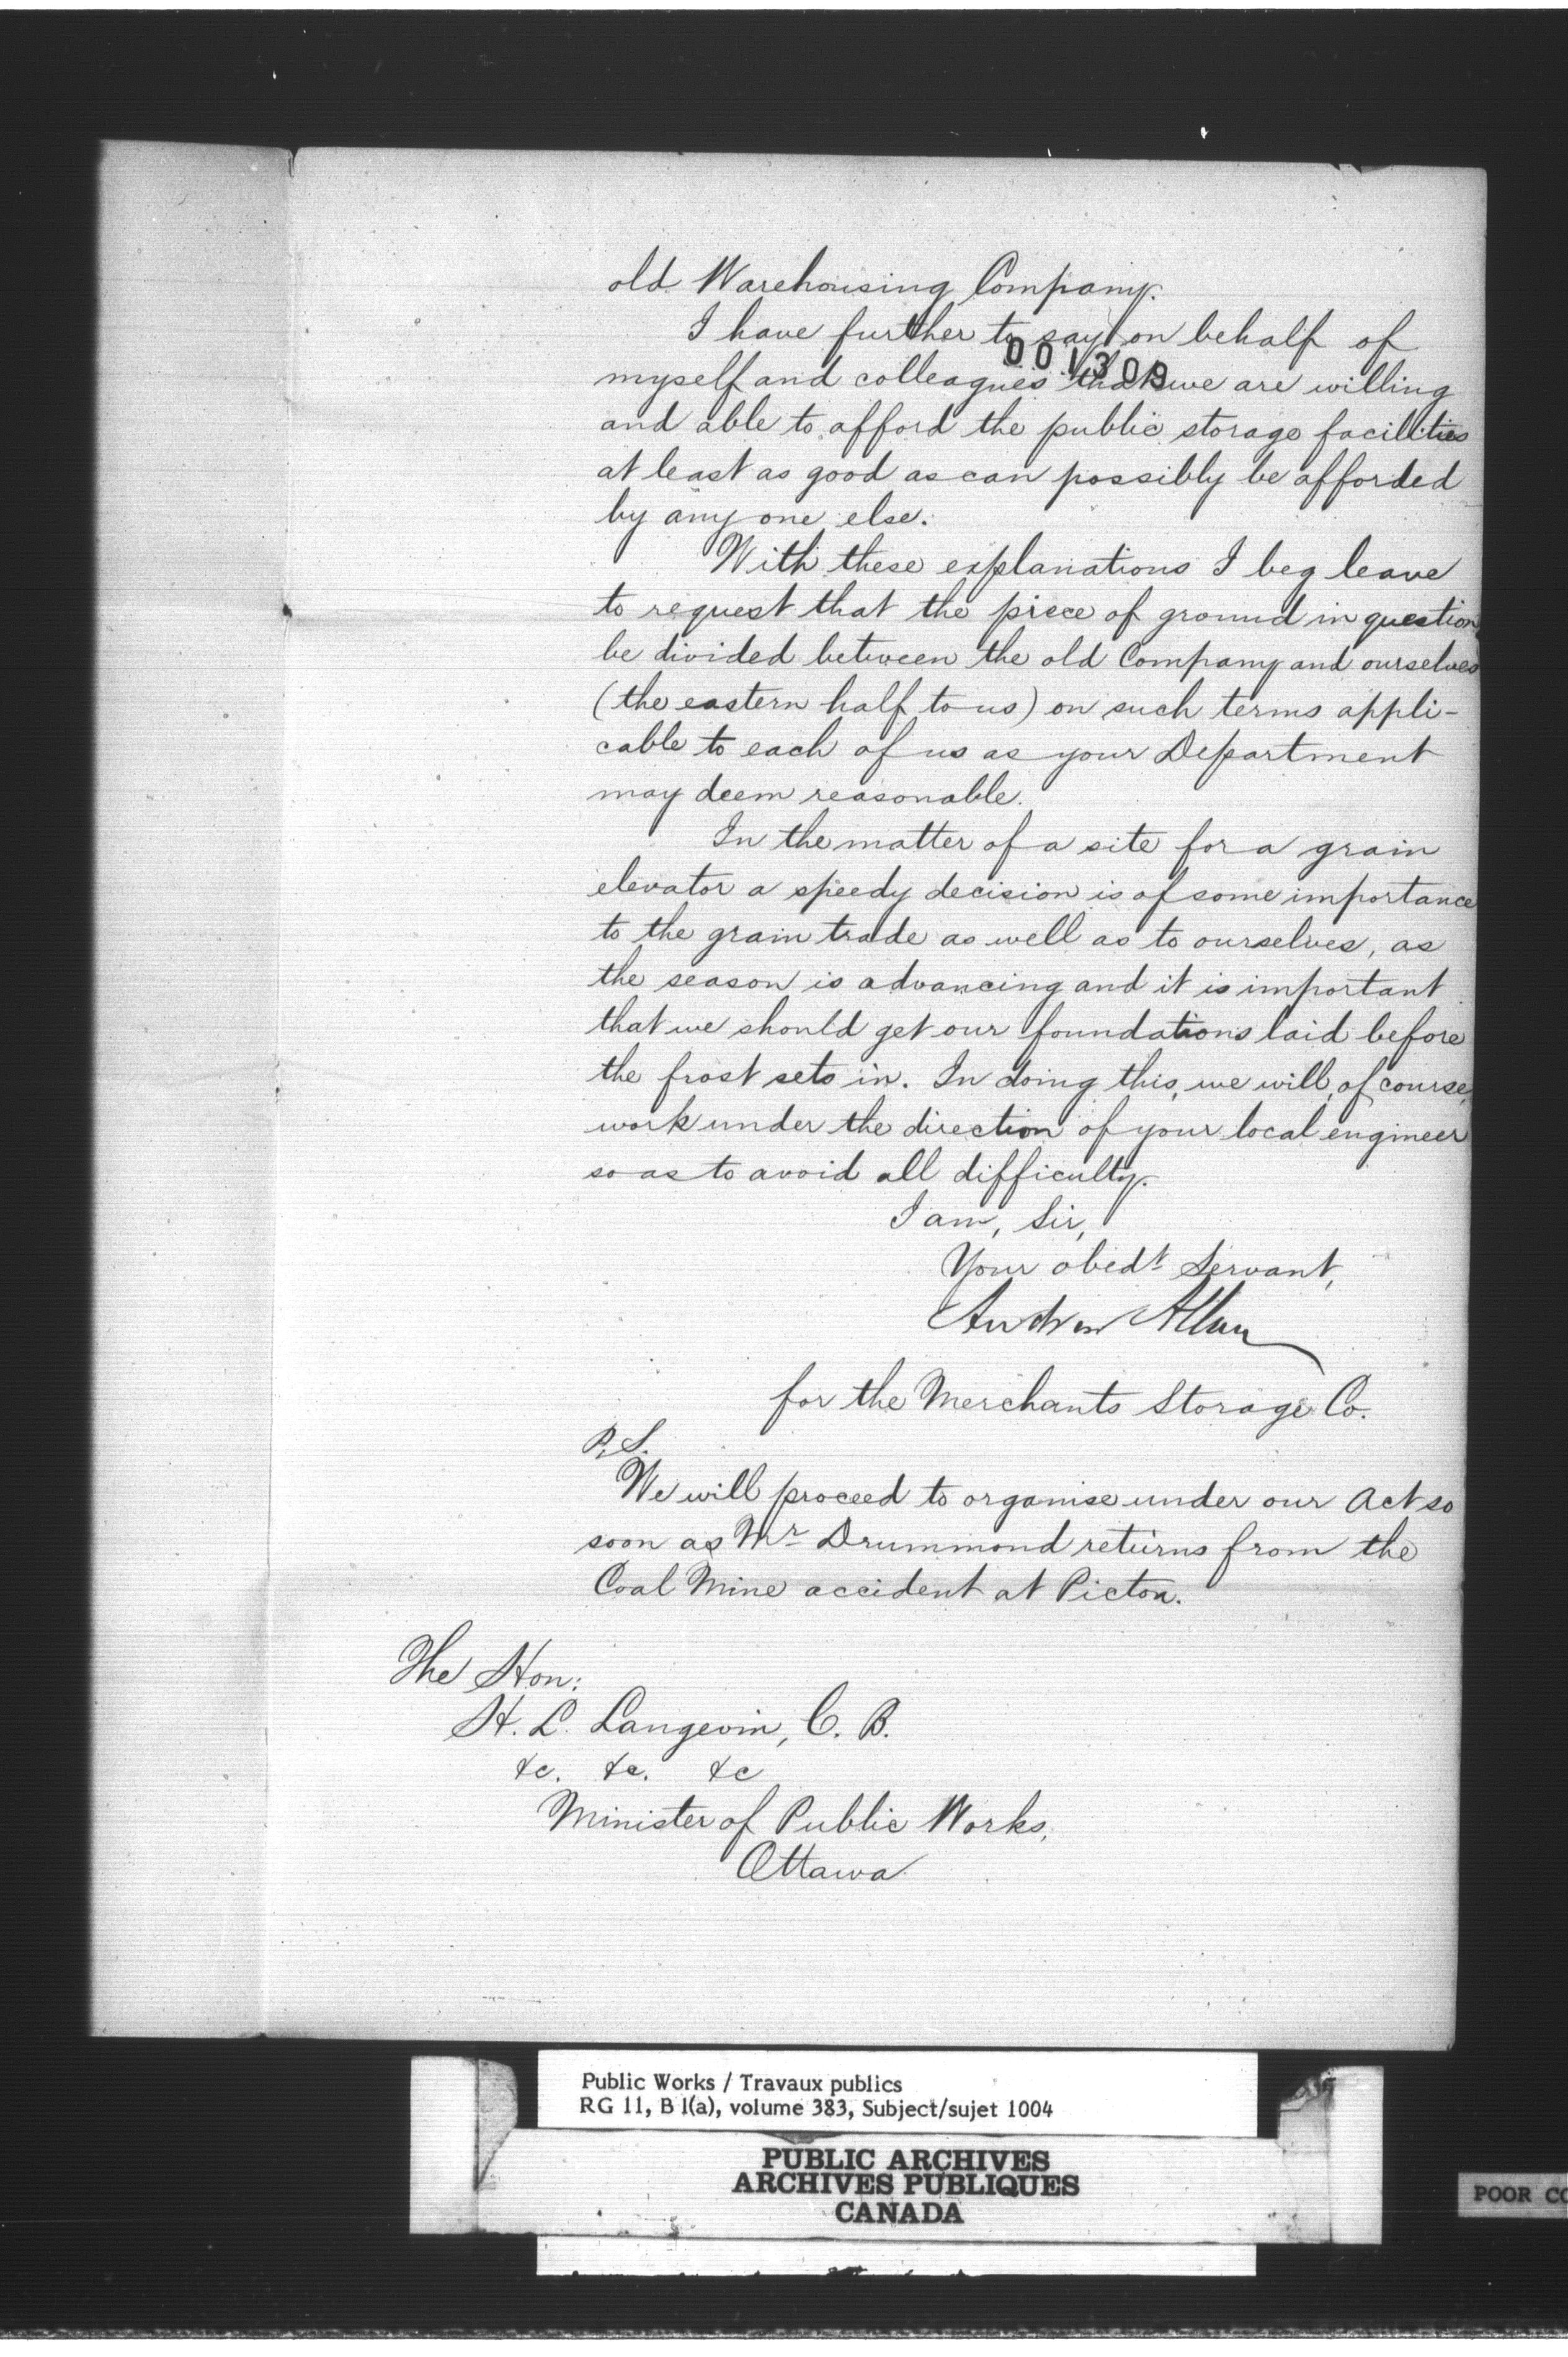 old Warehousing Company.
I have further to say on behalf of
001309
myself and colleagues that we are willing
and able to afford the public storage facilities
at least as good as can possibly be afforded
by any one else.
With these explanations I beg leave
to request that the piece of ground in question
be divided between the old Company and ourselves
(the eastern half to us) on such terms appli-
cable to each of us as your Department
may deem reasonable.
In the matter of a site for a grain
elevator a speedy decision is of some importance
to the grain trade as well as to ourselves, as
the season is advancing and it is important
that we should get our foundations laid before
the frost sets in. In doing this, we will, of course,
work under the direction of your local engineer
so as to avoid all difficulty.
I am, Sir,
Your obedt Servant,
Andrew Allan
for the Merchants Storage Co.
P.S.
We will proceed to organise under our Act so
soon as Mr Drummond returns from the
Coal Mine accident at Pictou.
The Hon:
H. L. Langevin, C. B.
&c. &c. &c
Minister of Public Works,
Ottawa
Public Works / Travaux publics
RG 11, B 1(a), volume 383, Subject/sujet 1004
PUBLIC ARCHIVES
ARCHIVES PUBLIQUES
CANADA
POOR CO